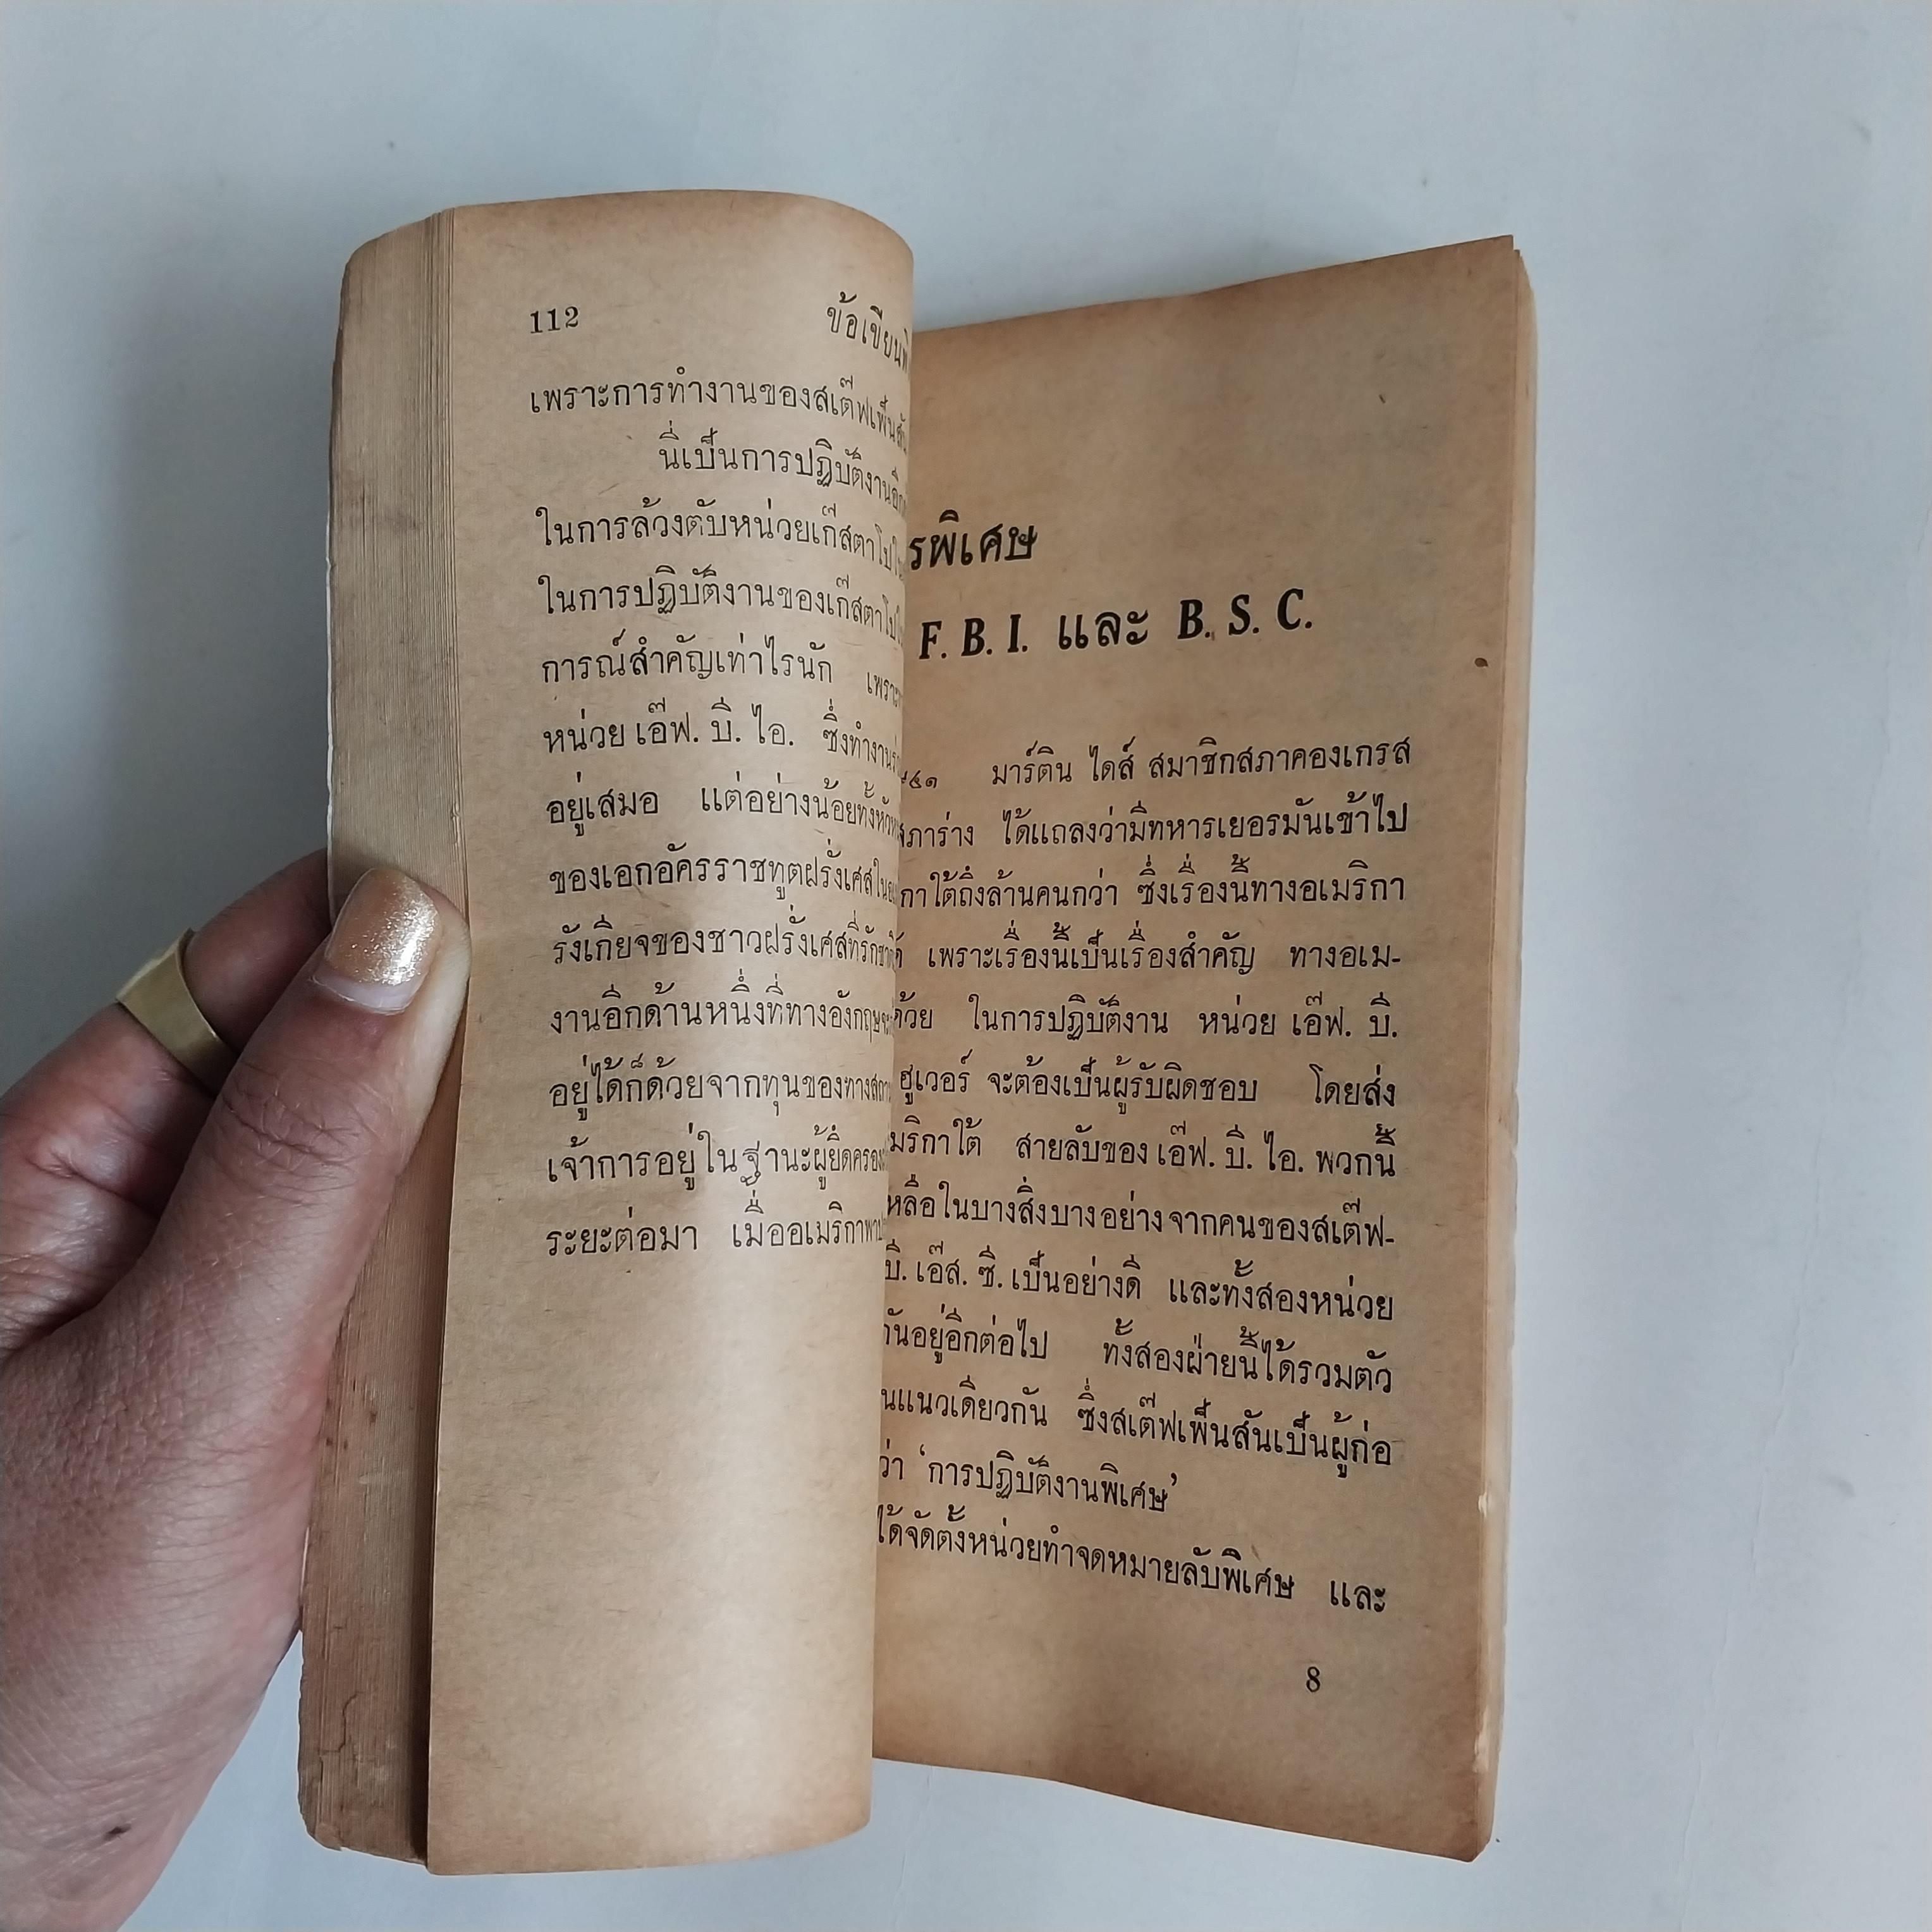 112
เพราะการทำงานของสเต๊ฟเพ็นสัน
นี่เป็นการปฏิบัติงาน
ในการล้วงตับหน่วยเก๊สตาโป
ในการปฏิบัติงานของเก๊สตาโป
การณ์สำคัญเท่าไรนัก เพราะ
หน่วย เอ๊ฟ. บี. ไอ. ซึ่งทำงาน
อยู่เสมอ แต่อย่างน้อยทั้งหัว
ของเอกอัครราชทูตฝรั่งเศสใน
รังเกียจของชาวฝรั่งเศสที่รักชาติ
งานอีกด้านหนึ่งที่ทางอังกฤษ
อยู่ได้ก็ด้วยจากทุนของทาง
เจ้าการอยู่ในฐานะผู้ยึดครอง
ระยะต่อมา เมื่ออเมริกา
พิเศษ
F. B. I. และ B. S. C.
มาร์ติน ไดส์ สมาชิกสภาคองเกรส
ได้แถลงว่ามีทหารเยอรมันเข้าไป
ใต้ถึงล้านคนกว่า ซึ่งเรื่องนี้ทางอเมริกา
เพราะเรื่องนี้เป็นเรื่องสำคัญ ทางอเม-
ด้วย ในการปฏิบัติงาน หน่วย เอ๊ฟ. บี.
ฮูเวอร์ จะต้องเป็นผู้รับผิดชอบ โดยส่ง
มริกาใต้ สายลับของ เอ๊ฟ. บี. ไอ. พวกนี้
หลือในบางสิ่งบางอย่างจากคนของสเต๊ฟ-
บี. เอ๊ส. ซี. เป็นอย่างดี และทั้งสองหน่วย
กันอยู่อีกต่อไป ทั้งสองฝ่ายนี้ได้รวมตัว
นแนวเดียวกัน ซึ่งสเต๊ฟเพ็นสันเป็นผู้ก่อ
ว่า ‘การปฏิบัติงานพิเศษ’
ได้จัดตั้งหน่วยทำจดหมายลับพิเศษ และ
8